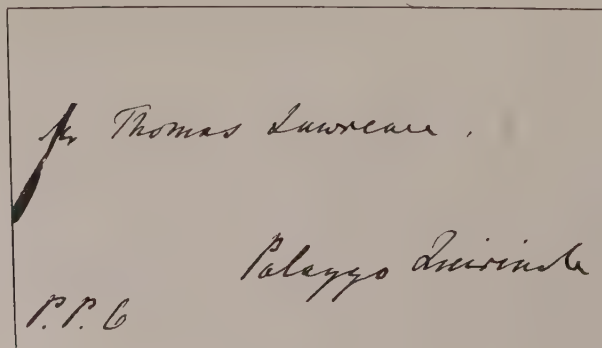 Sir Thomas Lawrence.
Palazzo Quirinale
P.P.C